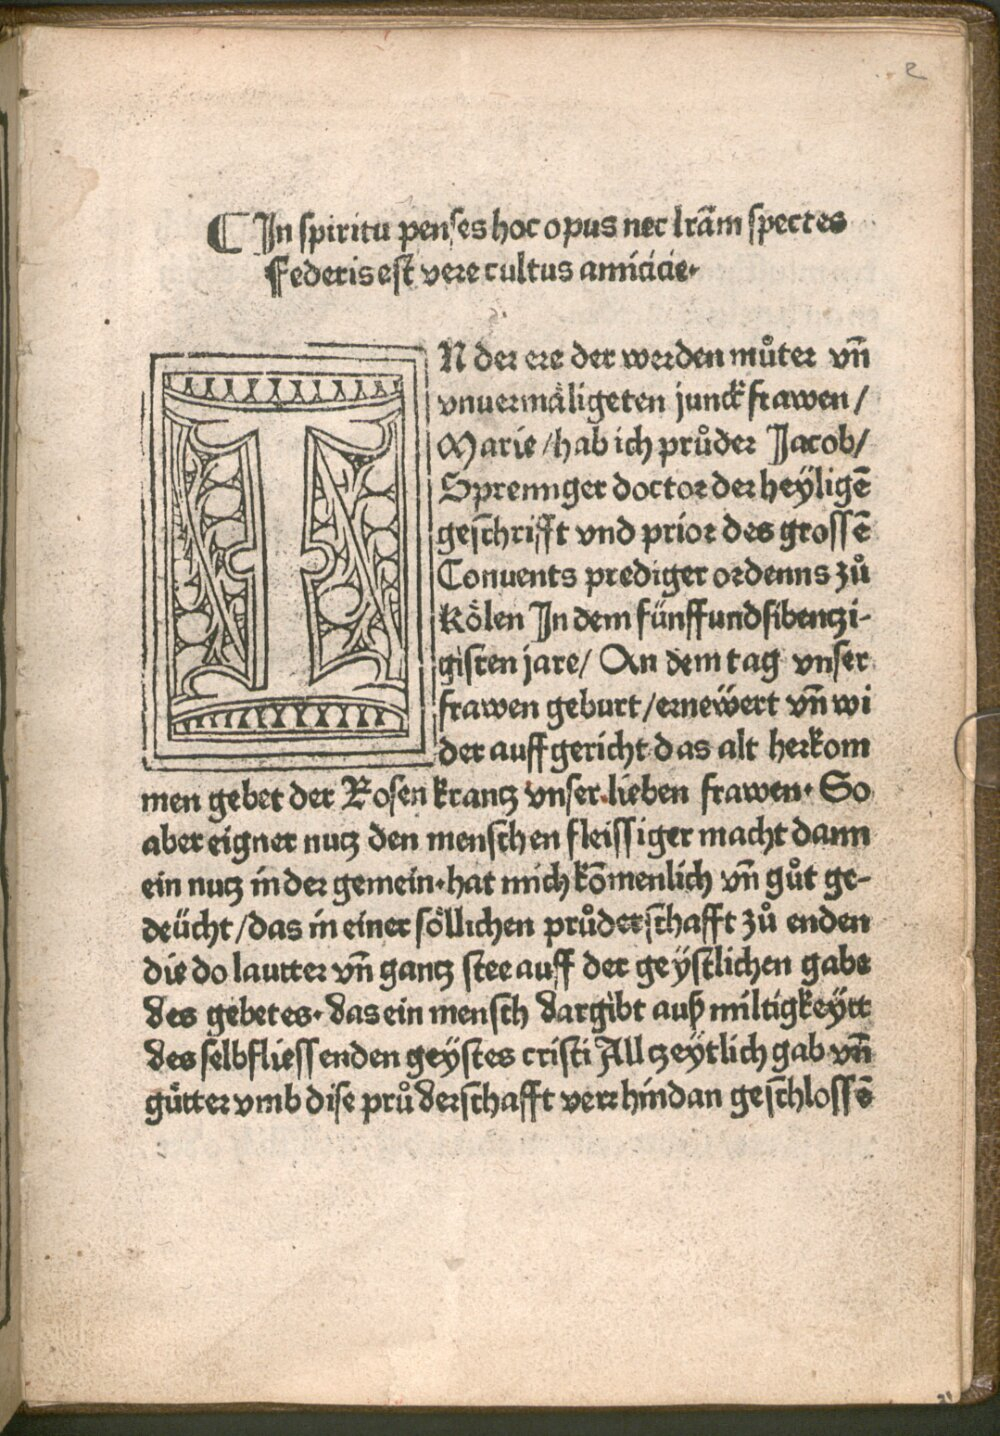 2
¶ In spiritu penses hoc opus nec lr̃am spectes
Federis est vere cultus amicicie.
IN der ere der werden můter vñ
vnuermäligeten junckfrawen /
Marie / hab ich průder Jacob /
Sprennger doctor der heÿligē
geschrifft vnd prior des grossē
Conuents prediger ordenns zů
Kölen In dem fünffundsibentzi-
gisten jare / An dem tag vnser
frawen geburt / ernewert vñ wi
der auffgericht das alt herkom
men gebet der Rosenkrantz vnser lieben frawen. So
aber eigner nutz den menschen fleissiger macht dann
ein nutz in der gemein. hat mich kōmenlich vñ gůt ge-
deücht / das in einer söllichen průderschafft zů enden
die do lautter vñ gantz stee auff der geÿstlichen gabe
des gebetes. das ein mensch dargibt auß miltigkeÿtt
des selbfliessenden geÿstes cristi All tzeÿtlich gab vñ
gütter vmb dise průderschafft verr hindan geschlossē